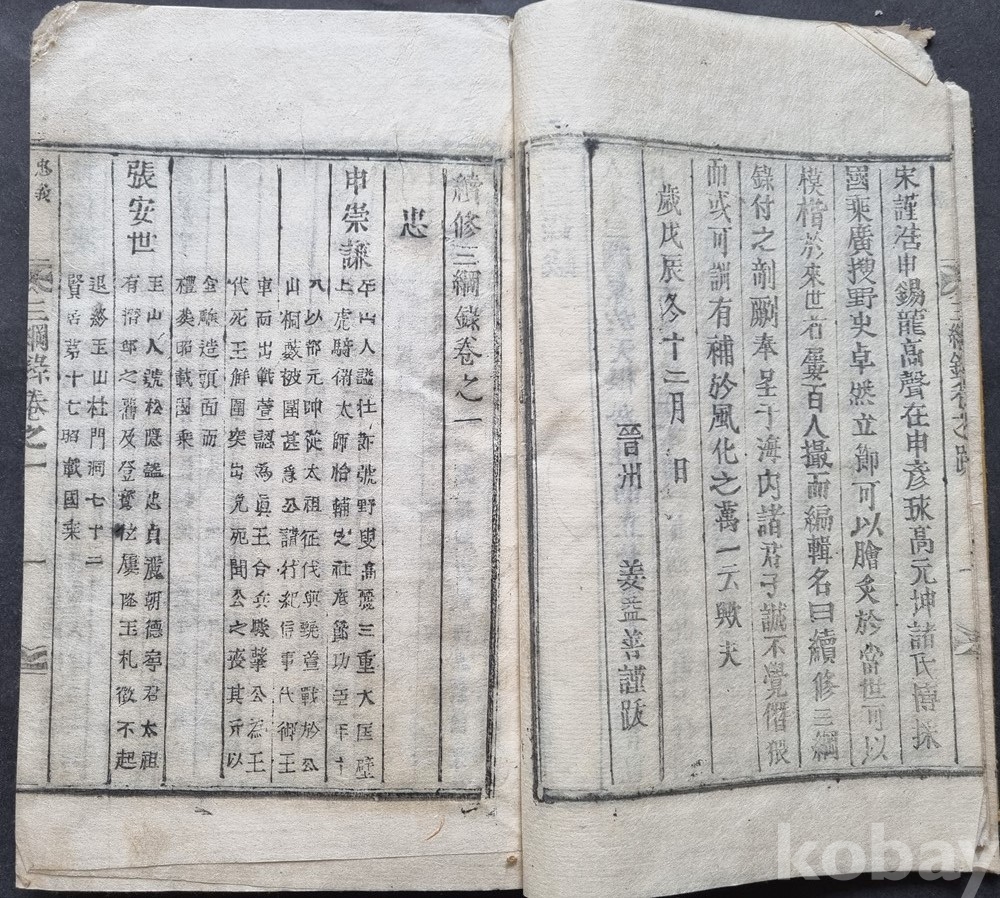 宋謹浩申錫龍高聲在申彦球高元坤諸氏博採
國乘廣搜野史卓然立節可以膾炙於當世可以
模楷於來世者屢百人撮而編輯名曰續修三綱
錄付之剞劂奉呈于海內諸君子誠不覺僭猥
而或可謂有補於風化之萬一云歟夫
歲戊辰冬十二月 日
晉州 姜益善謹跋
三綱錄卷之跋
續修三綱錄卷之一
忠
申崇謙
平山人諡壯節號野叟高麗三重大匡壁
上虎騎衛太師
山桐藪被圍甚急公請行紀信事代御王
車而出戰萱認爲眞王合兵駿擊公爲王
代死王解圍突出免死聞公之喪其元以
金鑄造頭面而
禮葬昭載國乘
張安世
玉山人號松隱諡忠貞麗朝德寧君太祖
有潛邸之舊及登寶位屢降玉札徵不起
退老玉山杜門洞七十二
賢居第十七昭載國乘
忠義
三綱錄卷之一
一
kobay